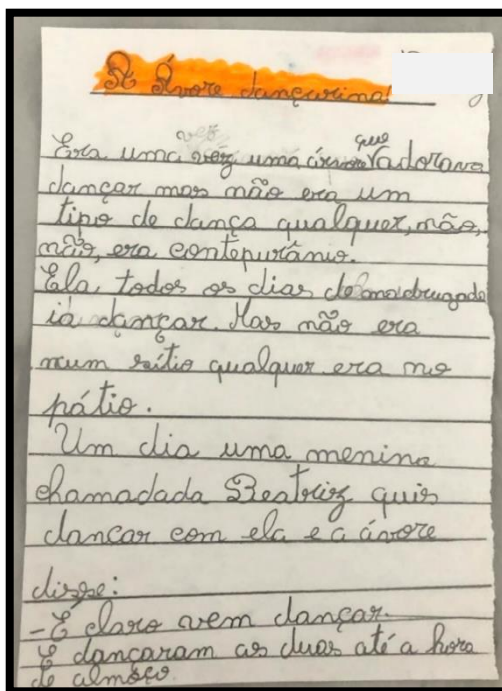 A Ávore dançarina!
Era uma vez uma árvore que adorava
dançar mas não era um
tipo de dança qualquer, não,
não, era contepurânio.
Ela todos os dias de madrugada
ia dançar. Mas não era
num sítio qualquer era no
pátio.
Um dia uma menina
chamadada Beatriz quis
dancar com ela e a ávore
disse:
-É claro vem dançar.
E dançaram as duas até a hora
de almoço.